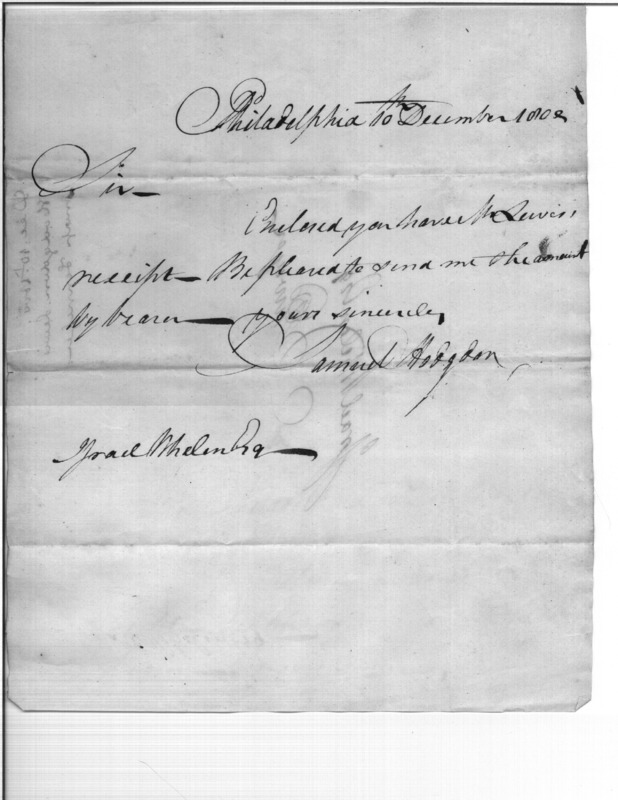 Philadelphia 10th December 1802
Sir—
Enclosed you have Mr Lewis's
receipt— Be pleased to send me the amount
by bearer— yours sincerely,
Samuel Hodgdon
Israel Whelen Esq—